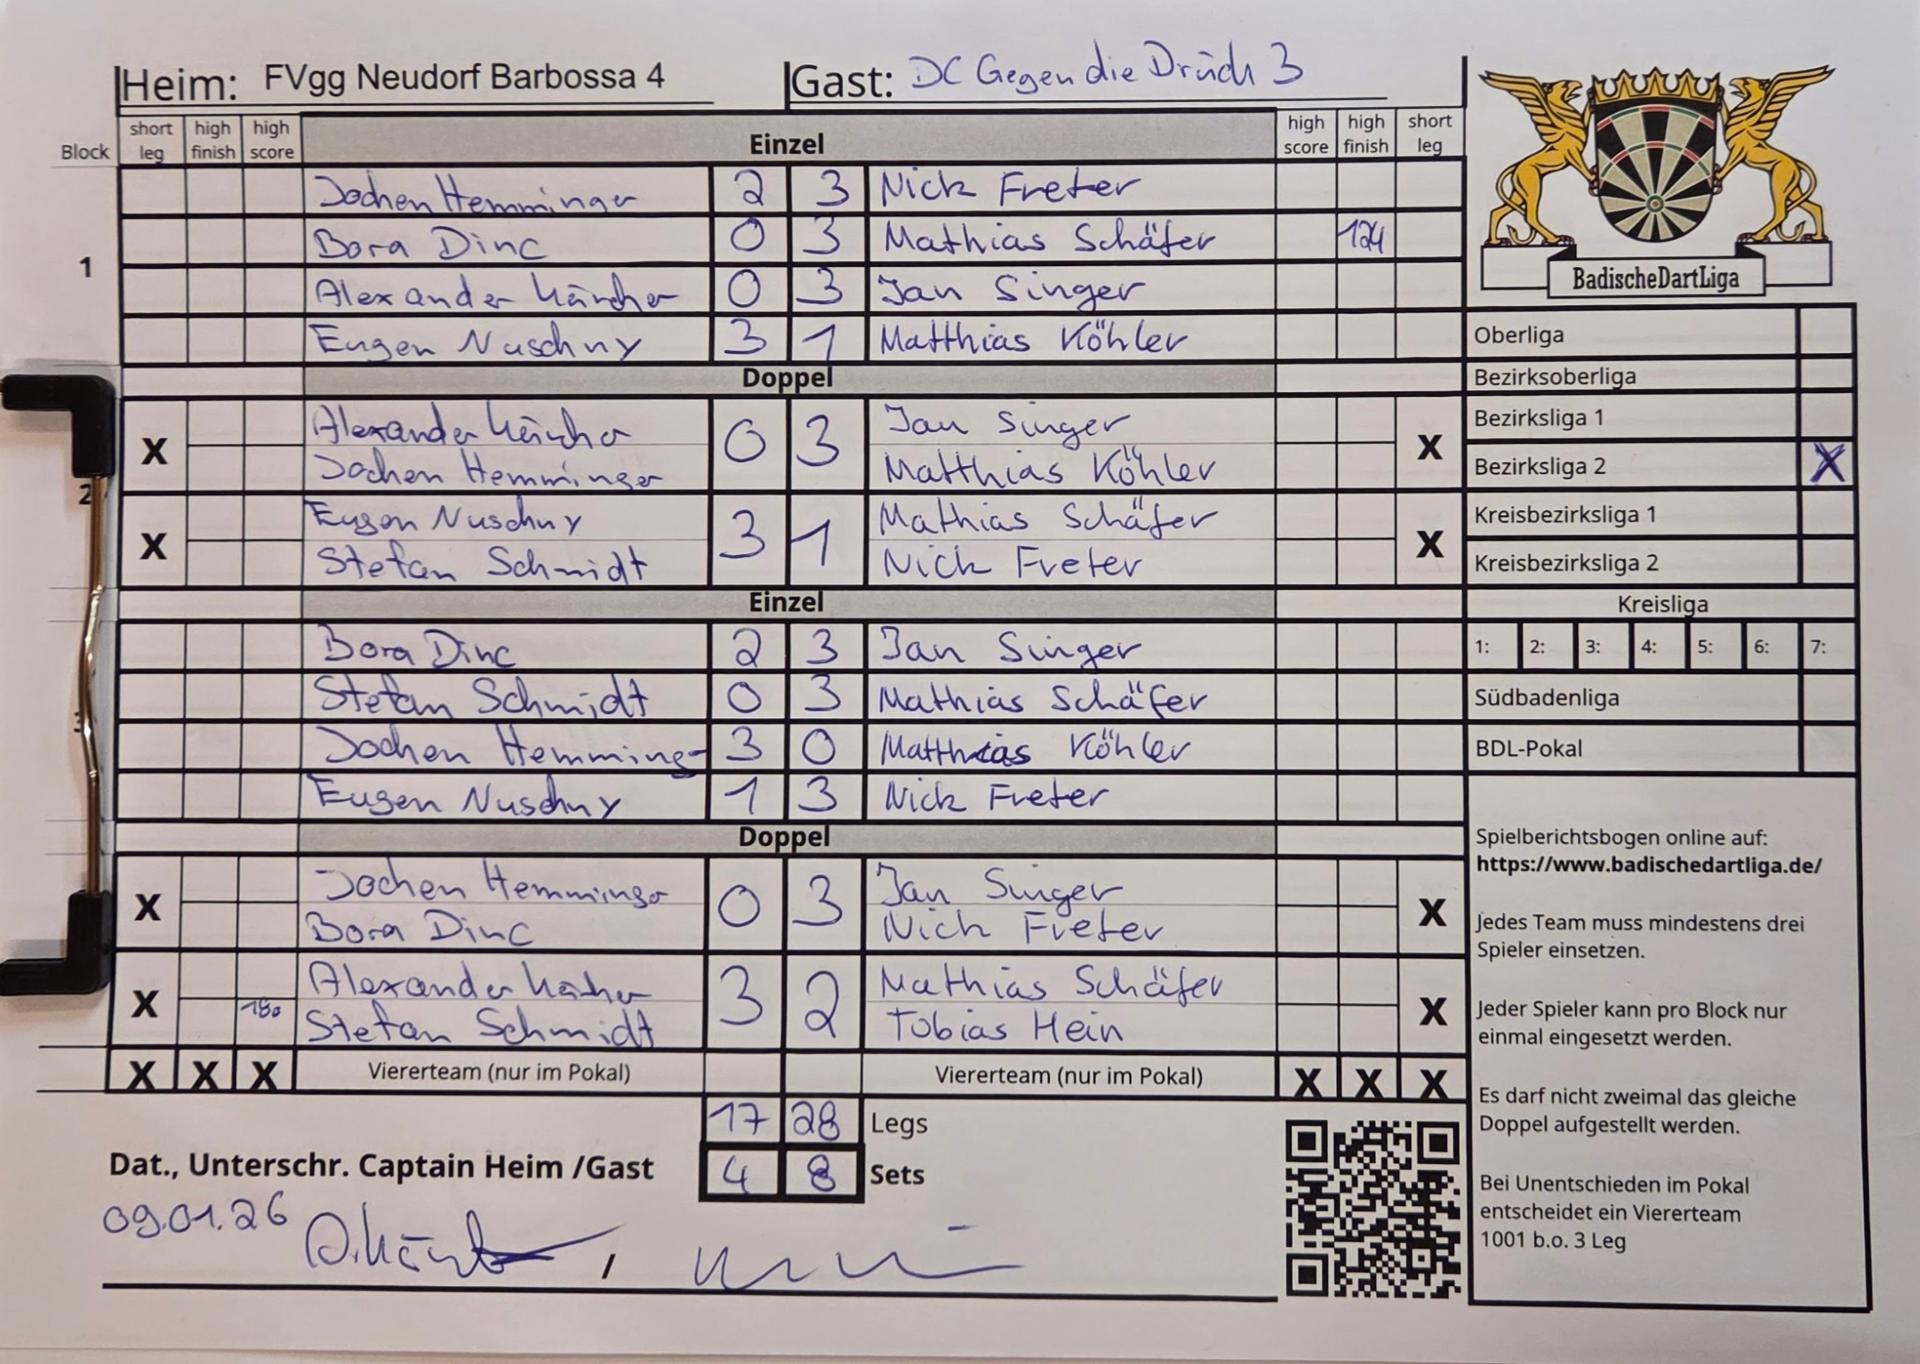 Heim: FVgg Neudorf Barbossa 4 Gast: DC Gegen die Drück 3
Block short leg high finish high score Einzel high score high finish short leg
1
Jochen Hemminger 2 3 Nick Freter
Bora Dinc 0 3 Mathias Schäfer 124
Alexander Kärcher 0 3 Jan Singer
Eugen Nuschny 3 1 Matthias Köhler
Doppel
2
X Alexander Kärcher 0 3 Jan Singer X
Jochen Hemminger Matthias Köhler
X Eugen Nuschny 3 1 Mathias Schäfer X
Stefan Schmidt Nick Freter
Einzel
3
Bora Dinc 2 3 Jan Singer
Stefan Schmidt 0 3 Mathias Schäfer
Jochen Hemming 3 0 Matthias Köhler
Eugen Nuschny 1 3 Nick Freter
Doppel
X Jochen Hemminger 0 3 Jan Singer X
Bora Dinc Nick Freter
X Alexander Kärcher 3 2 Mathias Schäfer X
180 Stefan Schmidt Tobias Hein
X X X Viererteam (nur im Pokal) Viererteam (nur im Pokal) X X X
17 28 Legs
4 8 Sets
Dat., Unterschr. Captain Heim /Gast
09.01.26 A.Kärcher /
BadischeDartLiga
Oberliga
Bezirksoberliga
Bezirksliga 1
Bezirksliga 2 X
Kreisbezirksliga 1
Kreisbezirksliga 2
Kreisliga
1: 2: 3: 4: 5: 6: 7:
Südbadenliga
BDL-Pokal
Spielberichtsbogen online auf:
https://www.badischedartliga.de/
Jedes Team muss mindestens drei
Spieler einsetzen.
Jeder Spieler kann pro Block nur
einmal eingesetzt werden.
Es darf nicht zweimal das gleiche
Doppel aufgestellt werden.
Bei Unentschieden im Pokal
entscheidet ein Viererteam
1001 b.o. 3 Leg